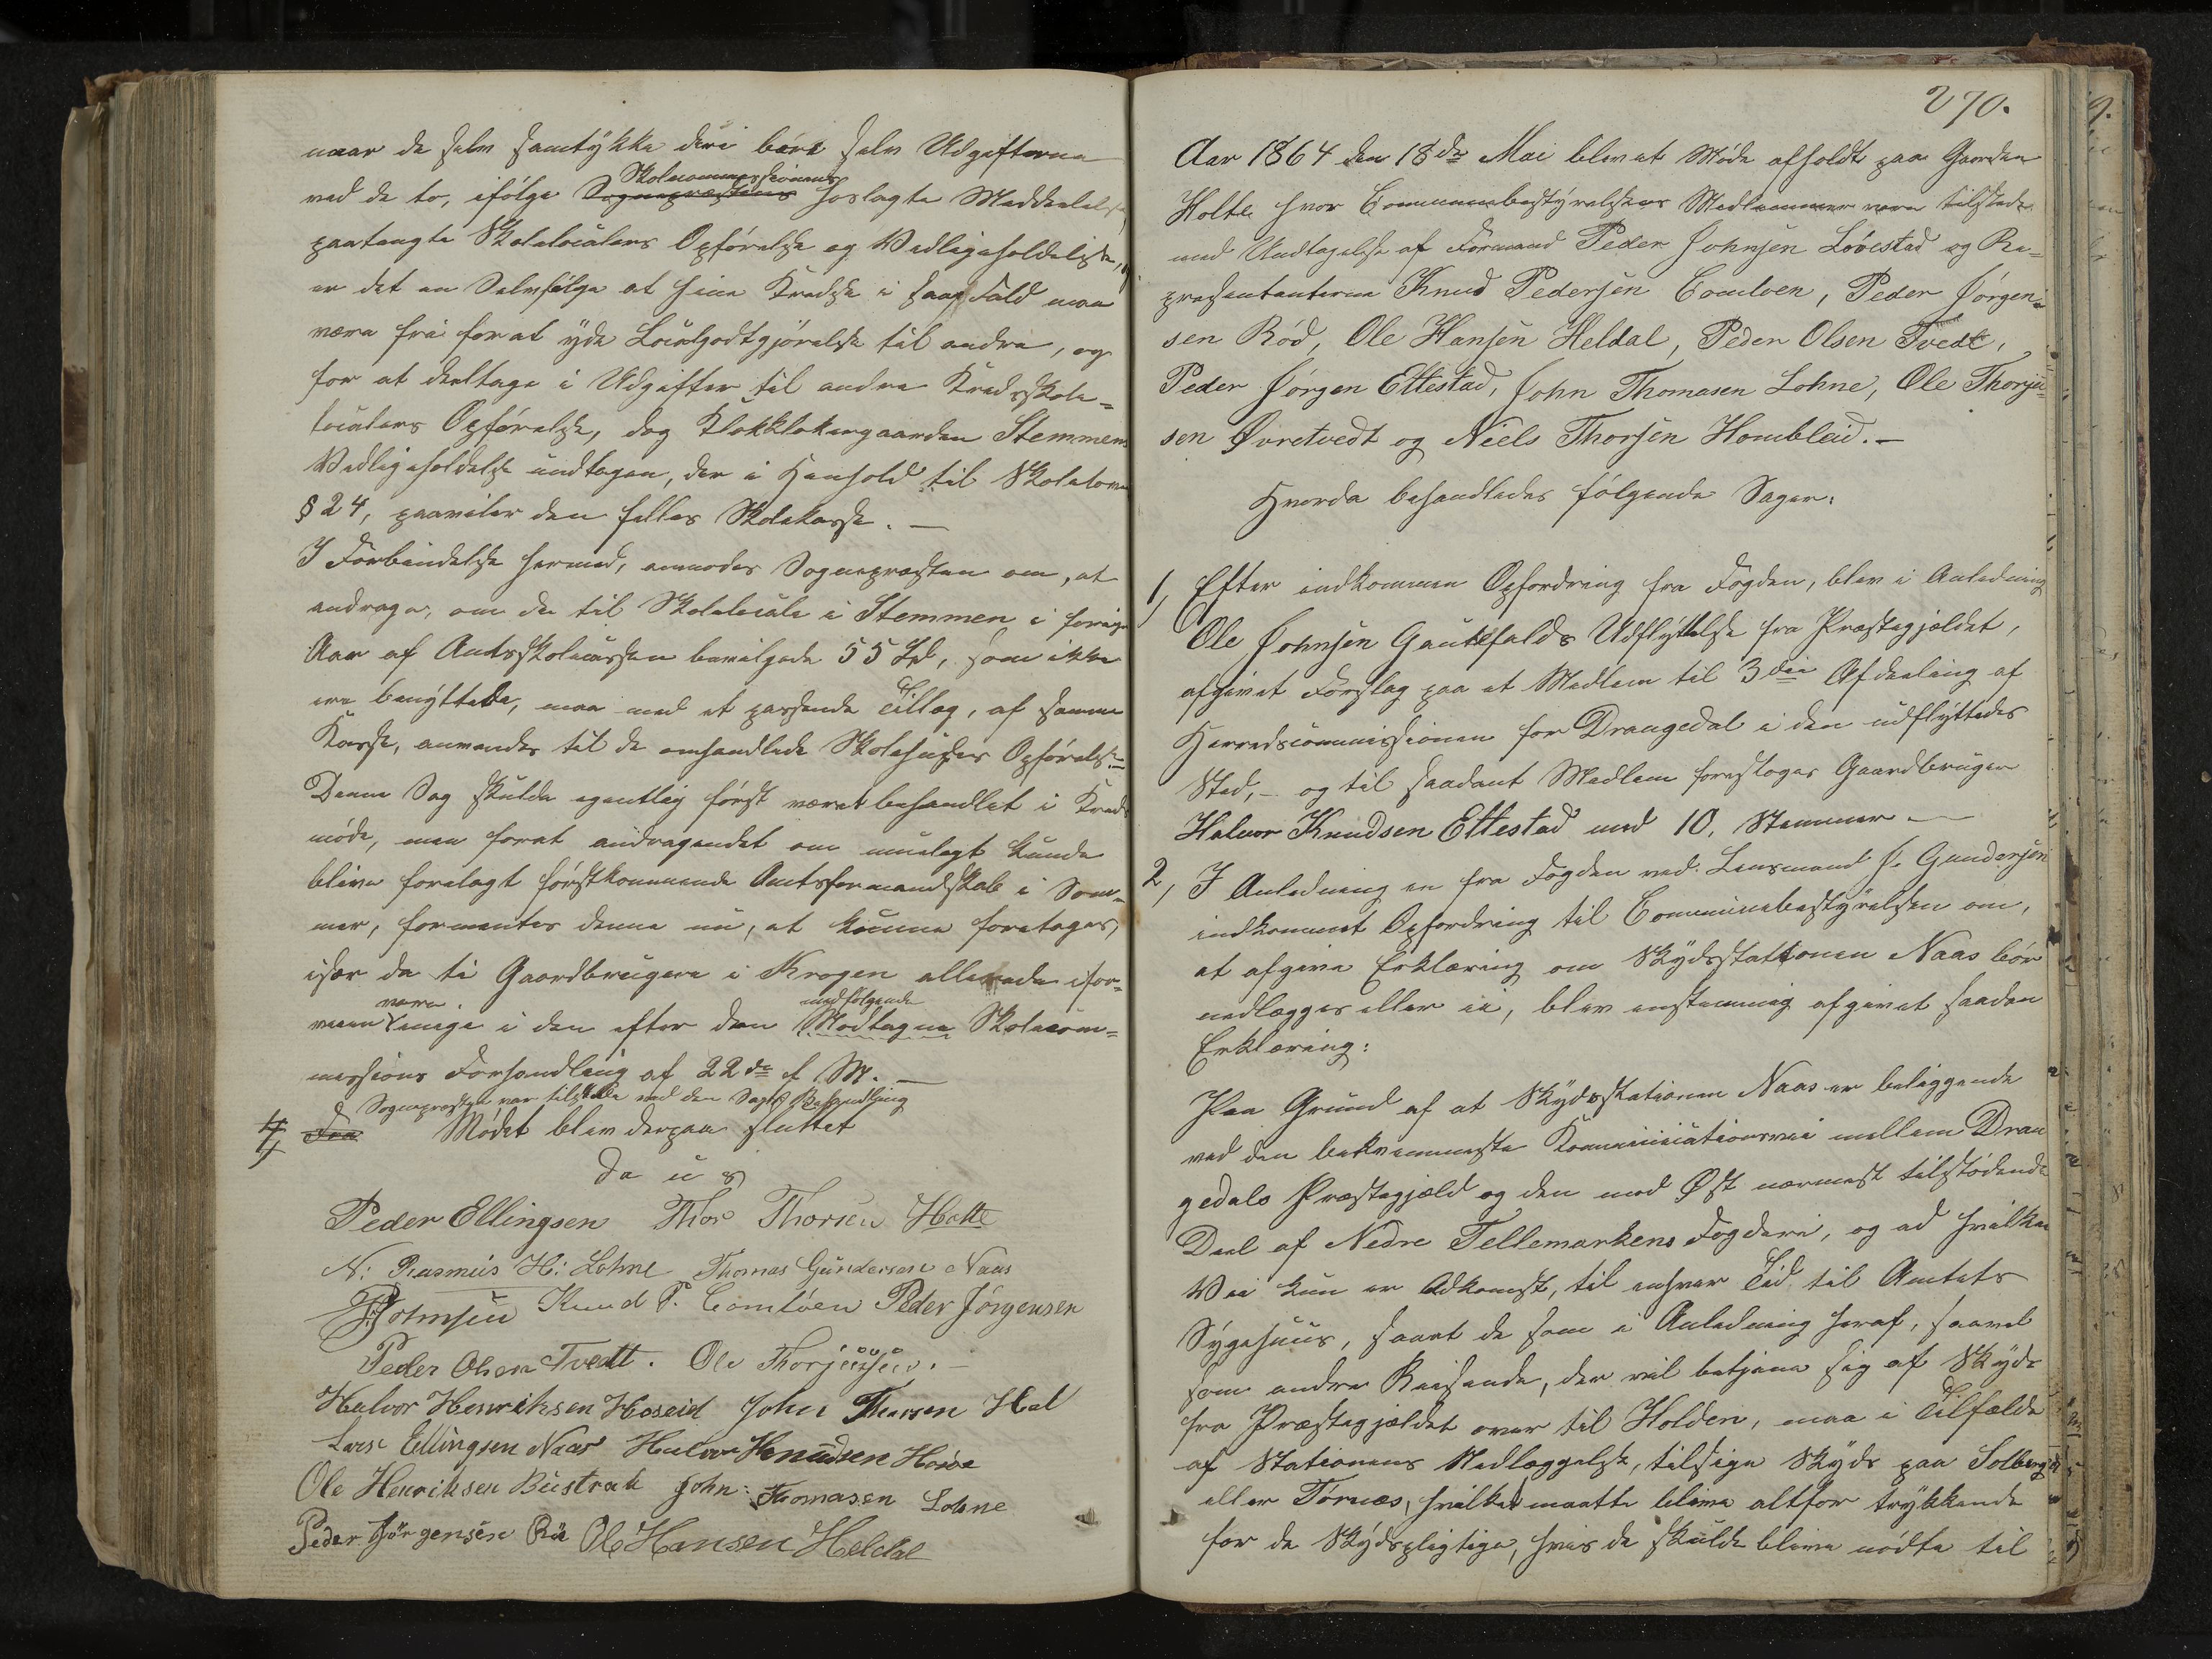 naar de selv samtykke deri bære selv Udgifterne
Skolecommissionens
ved de to, ifølge Sognepræstens forlagte Meddelelse,
paatengte Skolelocalers Opførelse og Vedligeholdelse,
er det en Selvfølge at sine Kredse i saa Fald maa
være fri for at yde Localgodtgjørelse til andre, og
for at deeltage i Udgifter til andre Kredsskole=
localers Opførelse, dog Klokkergaarden Stemmens
Vedligeholdelse undtagen, der i Henhold til Skoleloven
§ 24, paaviler den felles Skolekasse. —
I Forbindelse hermed, anmodes Sognepræsten om, at
andrage, om de til Skolelocale i Stemmen i forrige
Aar af Amtsskolecassen bevilgede 55 Spd, som ikke
ere benyttede, maa med et passende Tillæg, af samme
Kasse, anvendes til de omhandlede Skolehuses Opførelse. —
Denne Sag skulde egentlig først været behandlet i Kreds
møde, men forat andragendet om muelegt kunde
blive forelagt førstkommende Amtsformandskab i Som=
mer, formentes denne nu, at kunne foretages,
især da ti Gaardbrugere i Krogen allerede ifor=
være
veien enige i den efter den Modtagne Skolecom=
medfølgende
missions Forhandling af 22de f. M. —
Sognepræsten var tilstede ved den Sags Behandling
4, Fra Mødet blev derpaa sluttet
Da u s
Peder Ellingsen Thor Thorsen Holte
N: Rasmus H: Lohne Thomas Gundersen Naas
Johnsen Knud P. Comloen Peder Jørgensen
Peder Olsen Tvedt. Ole Thorjussen. —
Halvor Henriksen Hoseid John Thorsen Hal
Lars Ellingsen Naas Halvor Knudsen
Ole Henriksen Bustrak John: Thomasen Lohne
Peder Jørgensen Rø Ole Hansen Heldal
270.
Aar 1864 den 18de Mai blev et Møde afholdt paa Gaarden
Holte hvor Communebestyrelsens Medlemmer vare tilstede
med Undtagelse af Formand Peder Johnsen Løvestad og Re=
presentanterne Knud Pedersen Comloen, Peder Jørgen=
sen Rød, Ole Hansen Heldal, Peder Olsen Tvedt,
Peder Jørgen Ettestad, John Thomasen Lohne, Ole Thorju=
sen Øvretvedt og Niels Thorsen Hombleid. —
Hvorda behandledes følgende Sager:
1, Efter indkommen Opfordring fra Fogden, blev i Anledning
Ole Johnsen Gautefalds Udflyttelse fra Præstegjeldet,
afgivet Forslag paa et Medlem til 3die Afdeeling af
Herredscommissionen for Drangedal i den udflyttedes
Sted, - og til saadant Medlem foresloges Gaardbruger
Halvor Knudsen Ettestad med 10. Stemmer —
2, I Anledning en fra Fogden ved Lensmand J. Gundersen
indkommet Opfordring til Communebestyrelsen om,
at afgive Erklæring om Skydsstationen Naas bør
nedlægges eller ei, blev enstemmig afgivet saadan
Erklæring:
Paa Grund af at Skydsstationen Naas er beliggende
ved den bekvemmeste Kommunicationsvei mellem Dran
gedals Præstegjæld og den mod Øst nærmest tilstødende
Deel af Nedre Tellemarkens Fogderi, og ad hvilken
Vei kun er Adkomst, til enhver Tid til Amtets
Sygehuus, samt de som i Anledning heraf, saavel
som andre Reisende, der vil betjene sig af Skyds
fra Præstegjældet over til Holden, maa i Tilfælde
af Stationens Nedlæggelse, tilsige Skyds paa Solberg
eller Tørnæs, hvilket maatte blive altfor trykkende
for de Skydspligtige, hvis de skulde blive nødte til